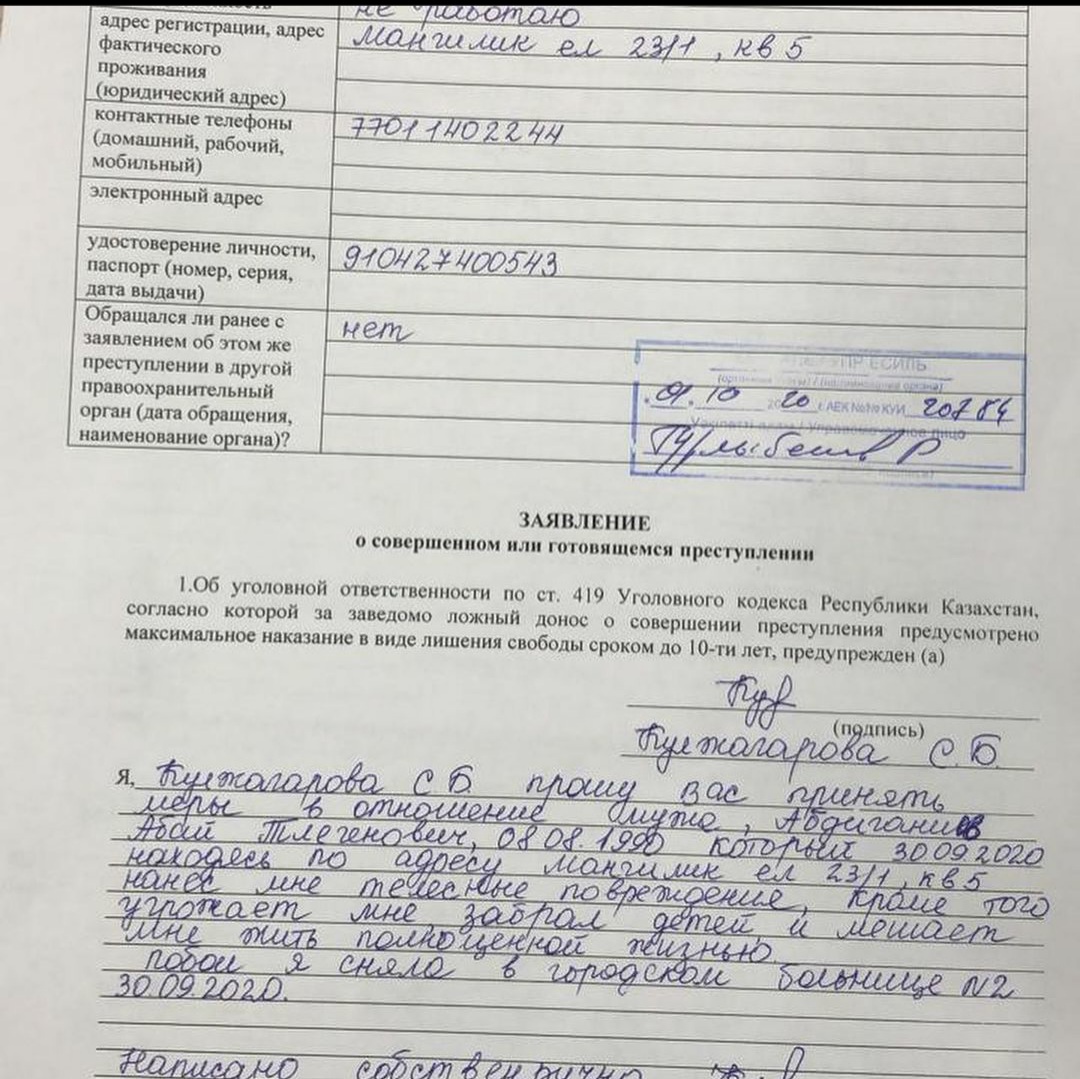 не работаю
адрес регистрации, адрес
фактического
проживания
(юридический адрес)
Мангилик ел 23/1, кв 5
контактные телефоны
(домашний, рабочий,
мобильный)
77011402244
электронный адрес
удостоверение личности,
паспорт (номер, серия,
дата выдачи)
910427400543
Обращался ли ранее с
заявлением об этом же
преступлении в другой
правоохранительный
орган (дата обращения,
наименование органа)?
нет
ЕСИЛЬ
01.10 2020 г. АЕК №/№ КУИ 20784
ЗАЯВЛЕНИЕ
о совершенном или готовящемся преступлении
1.Об уголовной ответственности по ст. 419 Уголовного кодекса Республики Казахстан,
согласно которой за заведомо ложный донос о совершении преступления предусмотрено
максимальное наказание в виде лишения свободы сроком до 10-ти лет, предупрежден (а)
(подпись)
Кулжагарова С.Б.
Я, Кулжагарова С.Б. прошу вас принять
меры в отношение мужа, Абдиганиев
Абай Тлегенович, 08.08.1990 который 30.09.2020
находясь по адресу Мангилик ел 23/1, кв 5
нанес мне телесные повреждение, кроме того
угрожает мне забрал детей и мешает
мне жить полноценной жизнью.
побои я сняла в городском больнице N2
30.09.2020.
Написано собственручно